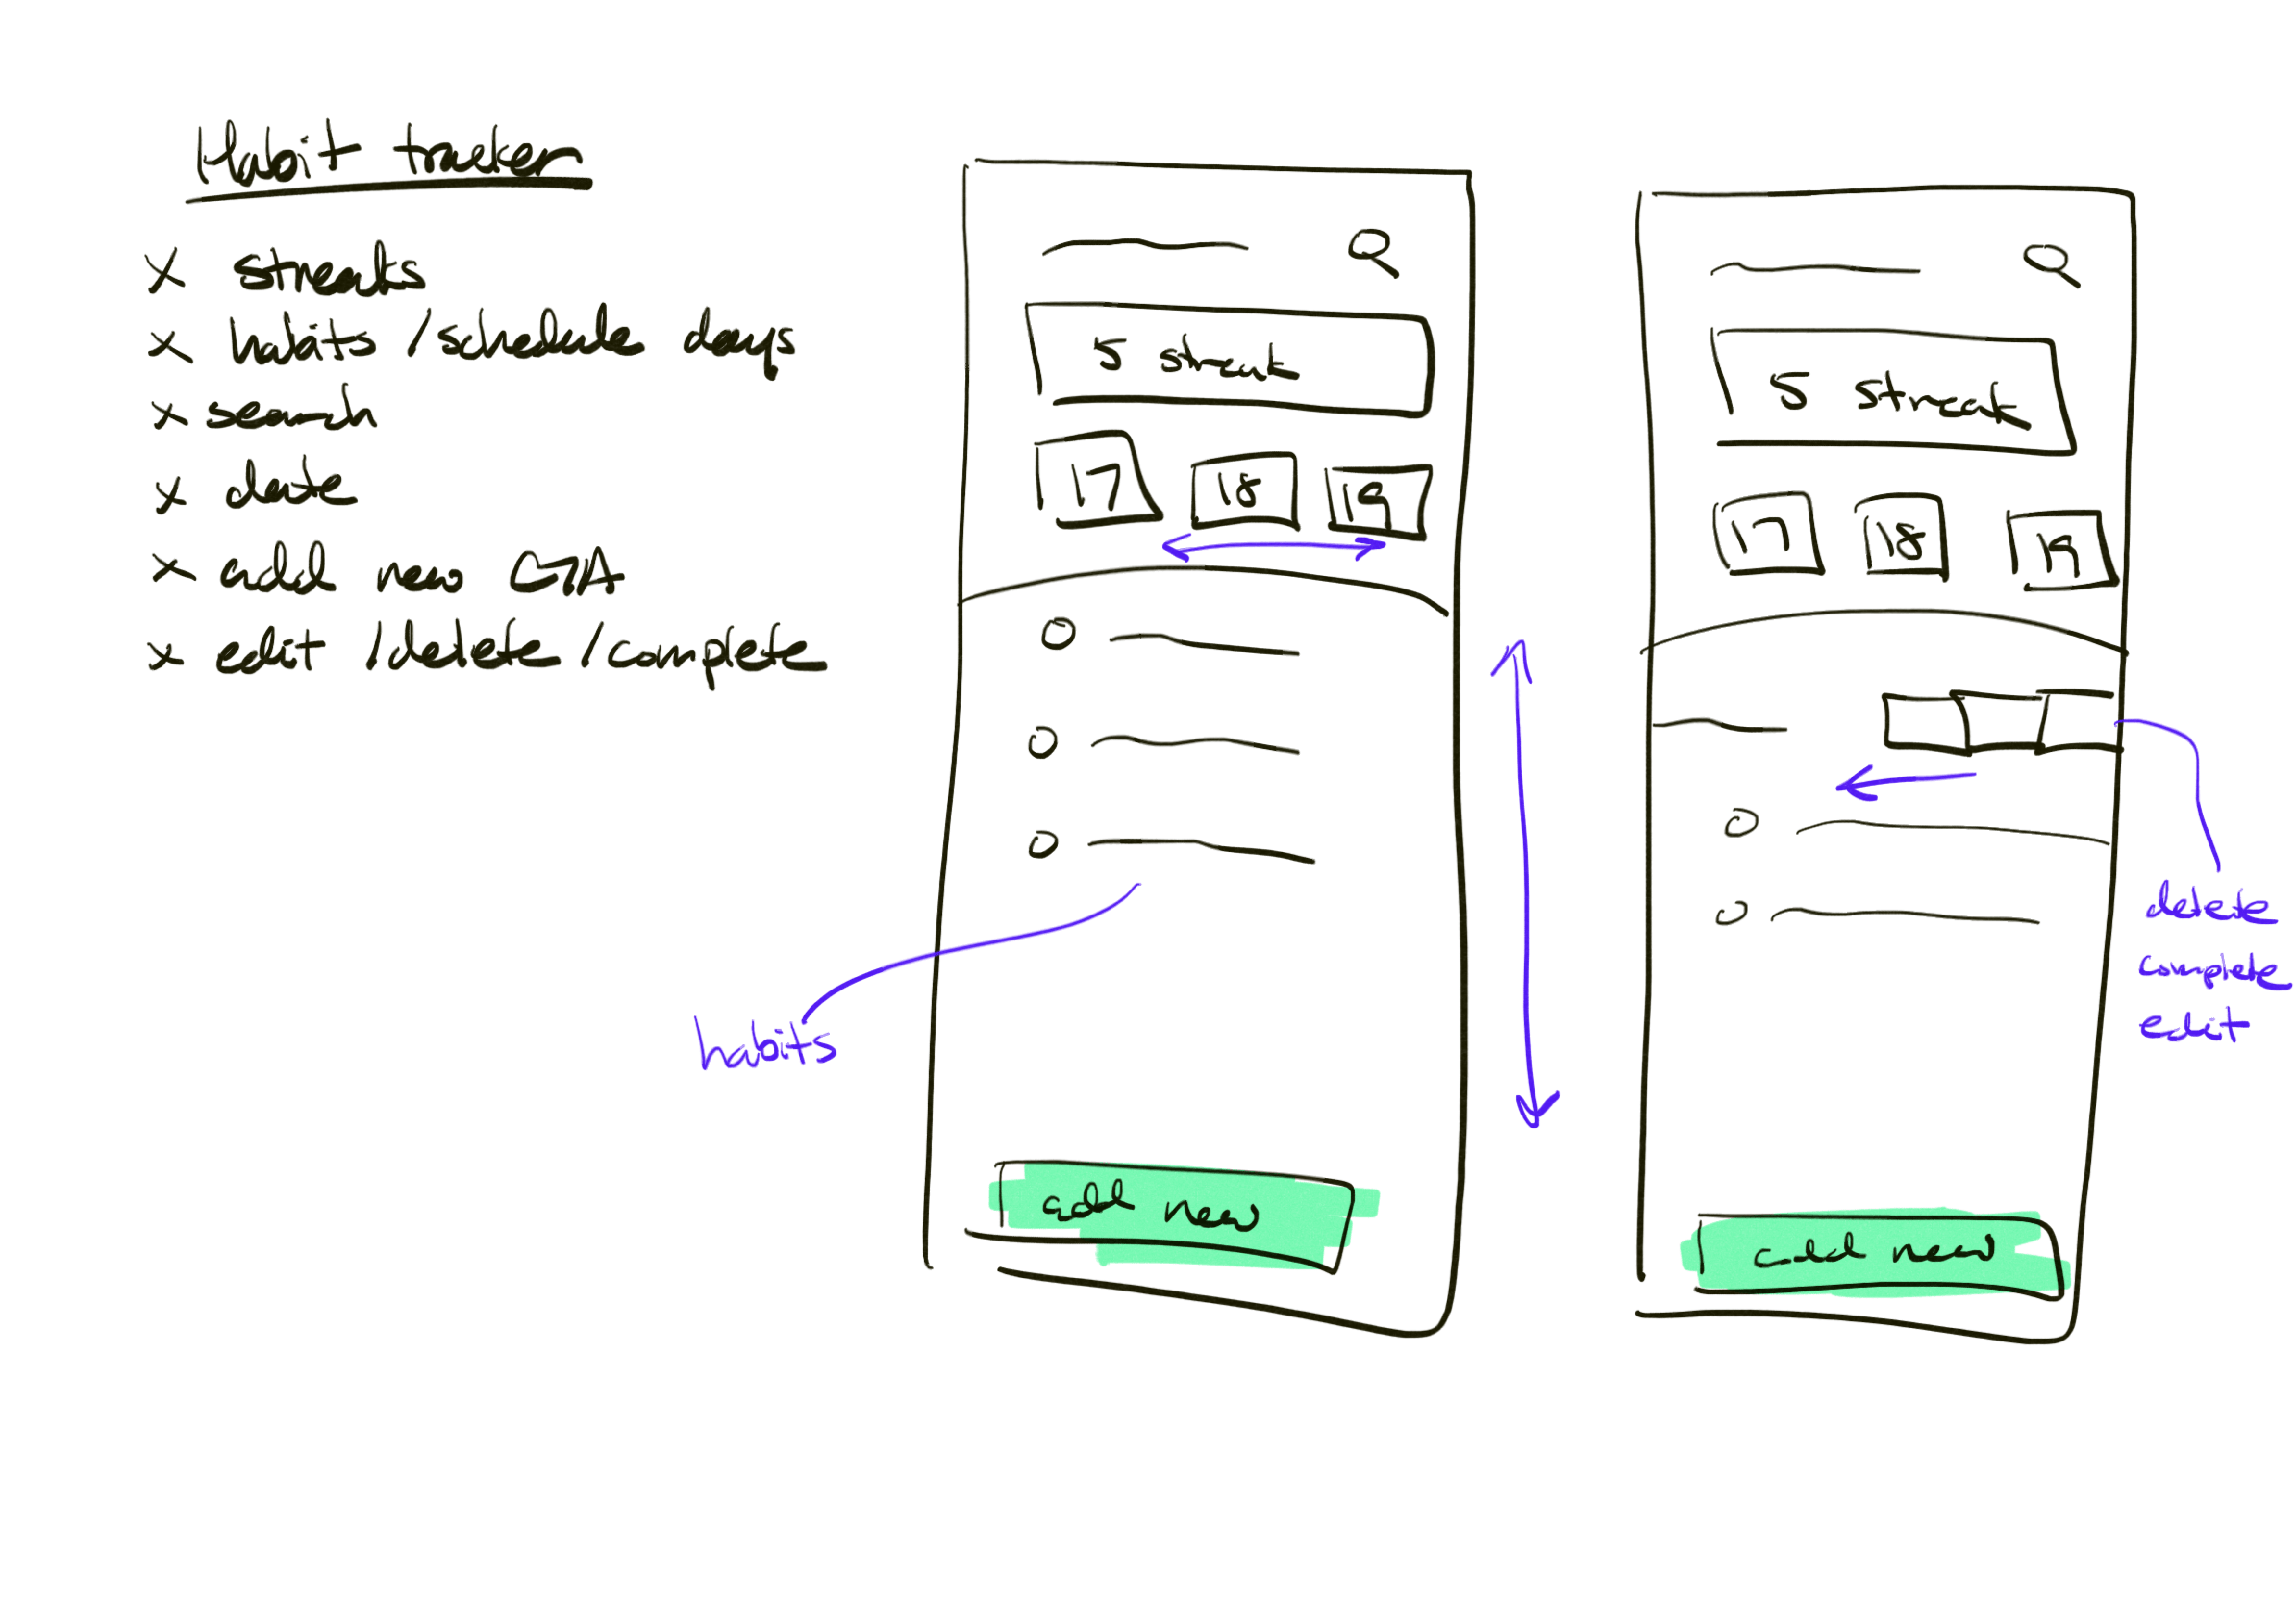 Habit tracker
x streaks
x habits / schedule days
x search
x date
x add new CTA
x edit / delete / complete
5 streak
17 18 19
habits
add new
5 streak
17 18 19
delete
complete
edit
add new